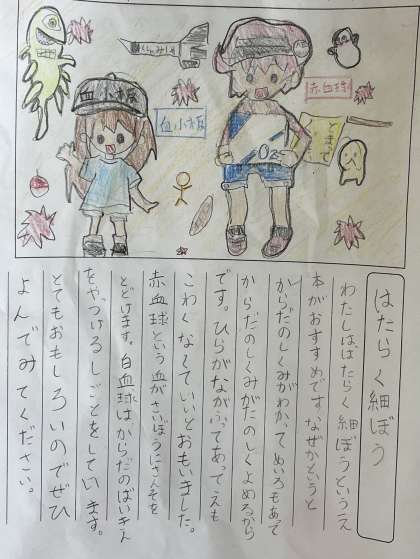 血小板
くんみしす
血小板
赤血球
とまって
O2
はたらく細ぼう
わたしははたらく細ぼうというえ
本がおすすめです。なぜかというと
からだのしくみがわかって、めいろもあって
からだのしくみがたのしくよめるから
です。ひらがながふってあってえも
こわくなくていいとおもいました。
赤血球という血がさいぼうにさんそを
とどけます。白血球はからだのばいきん
をやっつけるしごとをしています。
とてもおもしろいのでぜひ
よんでみてください。